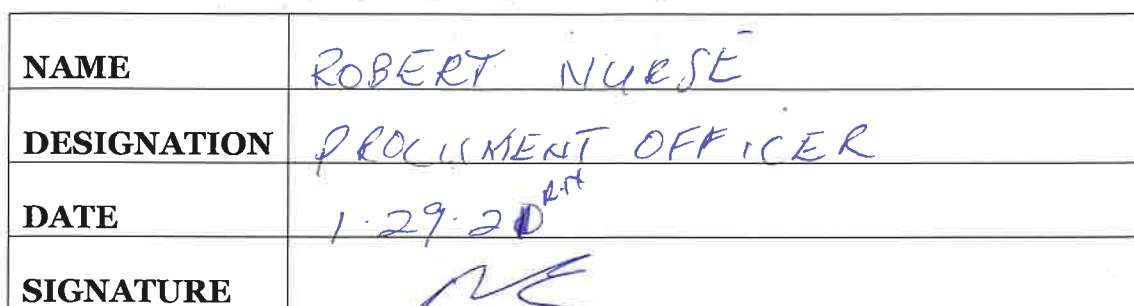 NAME ROBERT NURSE
DESIGNATION PROCUMENT OFFICER
DATE 1.29.20
SIGNATURE